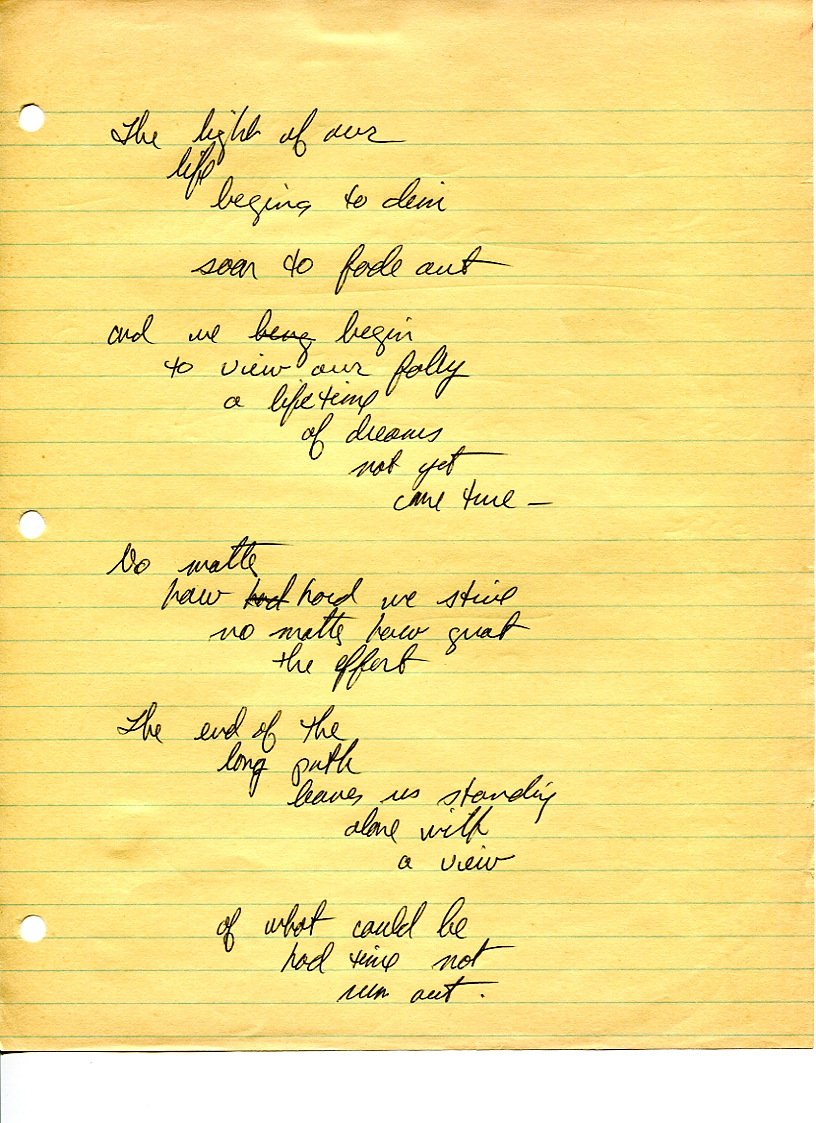 The light of our
life
begins to dim
soon to fade out
and we being begin
to view our folly
a lifetime
of dreams
not yet
come true —
No matter
how had hard we strive
no matter how great
the effort
The end of the
long path
leaves us standing
alone with
a view
of what could be
had time not
run out.